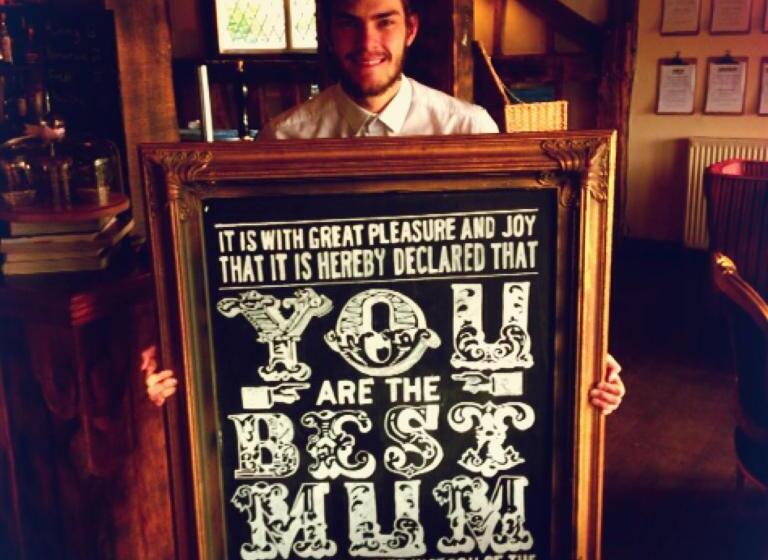 IT IS WITH GREAT PLEASURE AND JOY
THAT IT IS HEREBY DECLARED THAT
YOU
ARE THE
BEST
MUM
OF THE